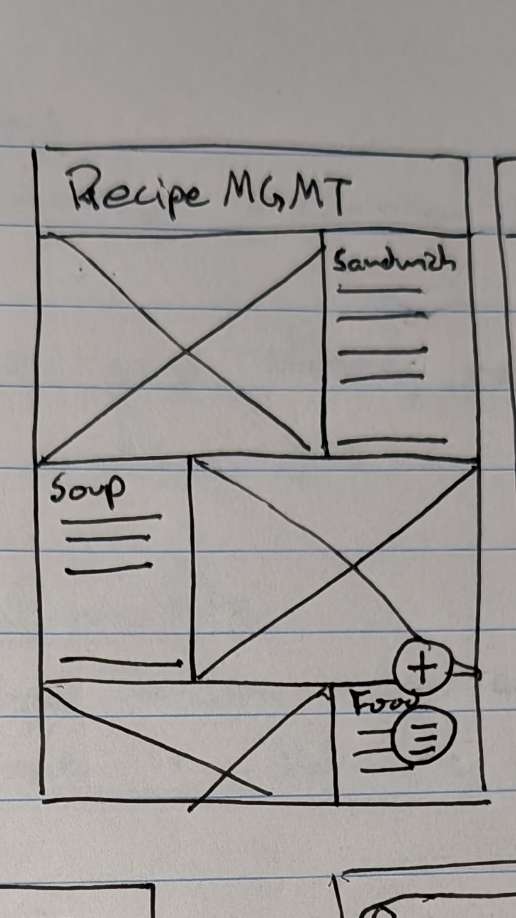 Recipe MGMT
Sandwich
Soup
+
Food